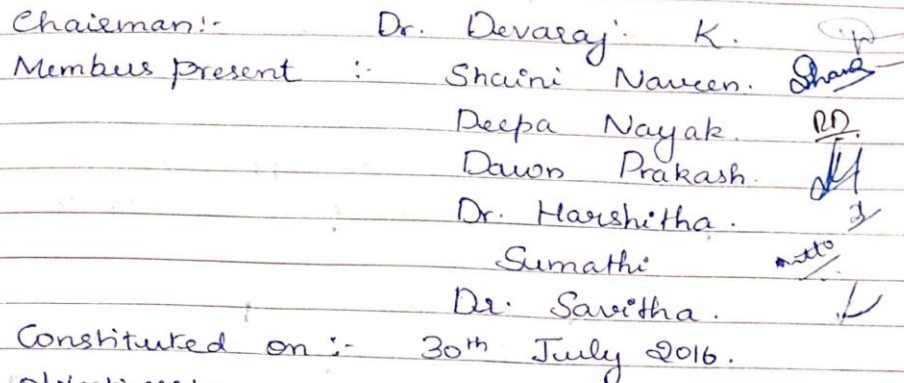 Chairman:- Dr. Devaraj. K.
Members present :- Shaini Naveen.
Deepa Nayak.
Dawn Prakash.
Dr. Harshitha.
Sumathi
Dr. Savitha.
Constituted on :- 30th July 2016.